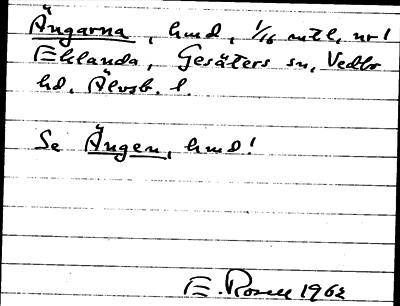 Ängarna, hmd, 1/16 mtl. nr 1
Ehlanda, Gesäters sn, Vedbo
hd. Älvsb. l.
Se Ängen, hmd!
E. Rosell 1962